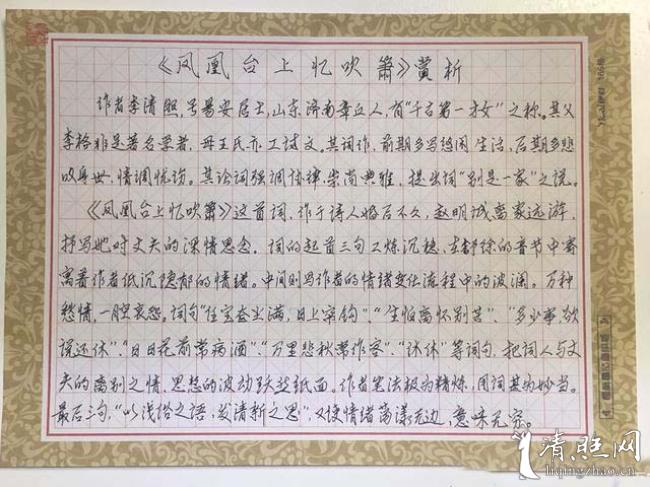 《凤凰台上忆吹箫》赏析
作者李清照，号易安居士，山东济南章丘人，有“千古第一才女”之称。其父
李格非是著名学者，母王氏亦工诗文。其词作，前期多写悠闲生活，后期多悲
叹身世，情调忧伤。其论词强调协律，崇尚典雅，提出词“别是一家”之说。
《凤凰台上忆吹箫》这首词，作于诗人婚后不久，赵明诚离家远游，
抒写她对丈夫的深情思念。词的起首三句工炼沉稳，在舒徐的音节中寄
寓着作者低沉隐郁的情绪。中间则写作者的情绪变化流程中的波澜。万种
愁情，一腔哀怨。词句“任宝奁尘满，日上帘钩”、“生怕离怀别苦”、“多少事，欲
说还休”、“日日花前常病酒”、“万里悲秋常作客”、“休休”等词句，把词人与丈
夫的离别之情，思想的波动跃然纸面，作者笔法极为精炼，用词甚为妙当。
最后三句，“以浅俗之语，发清新之思”，又使情绪荡漾无边，意味无穷。
清照网
liqingzhao.cn